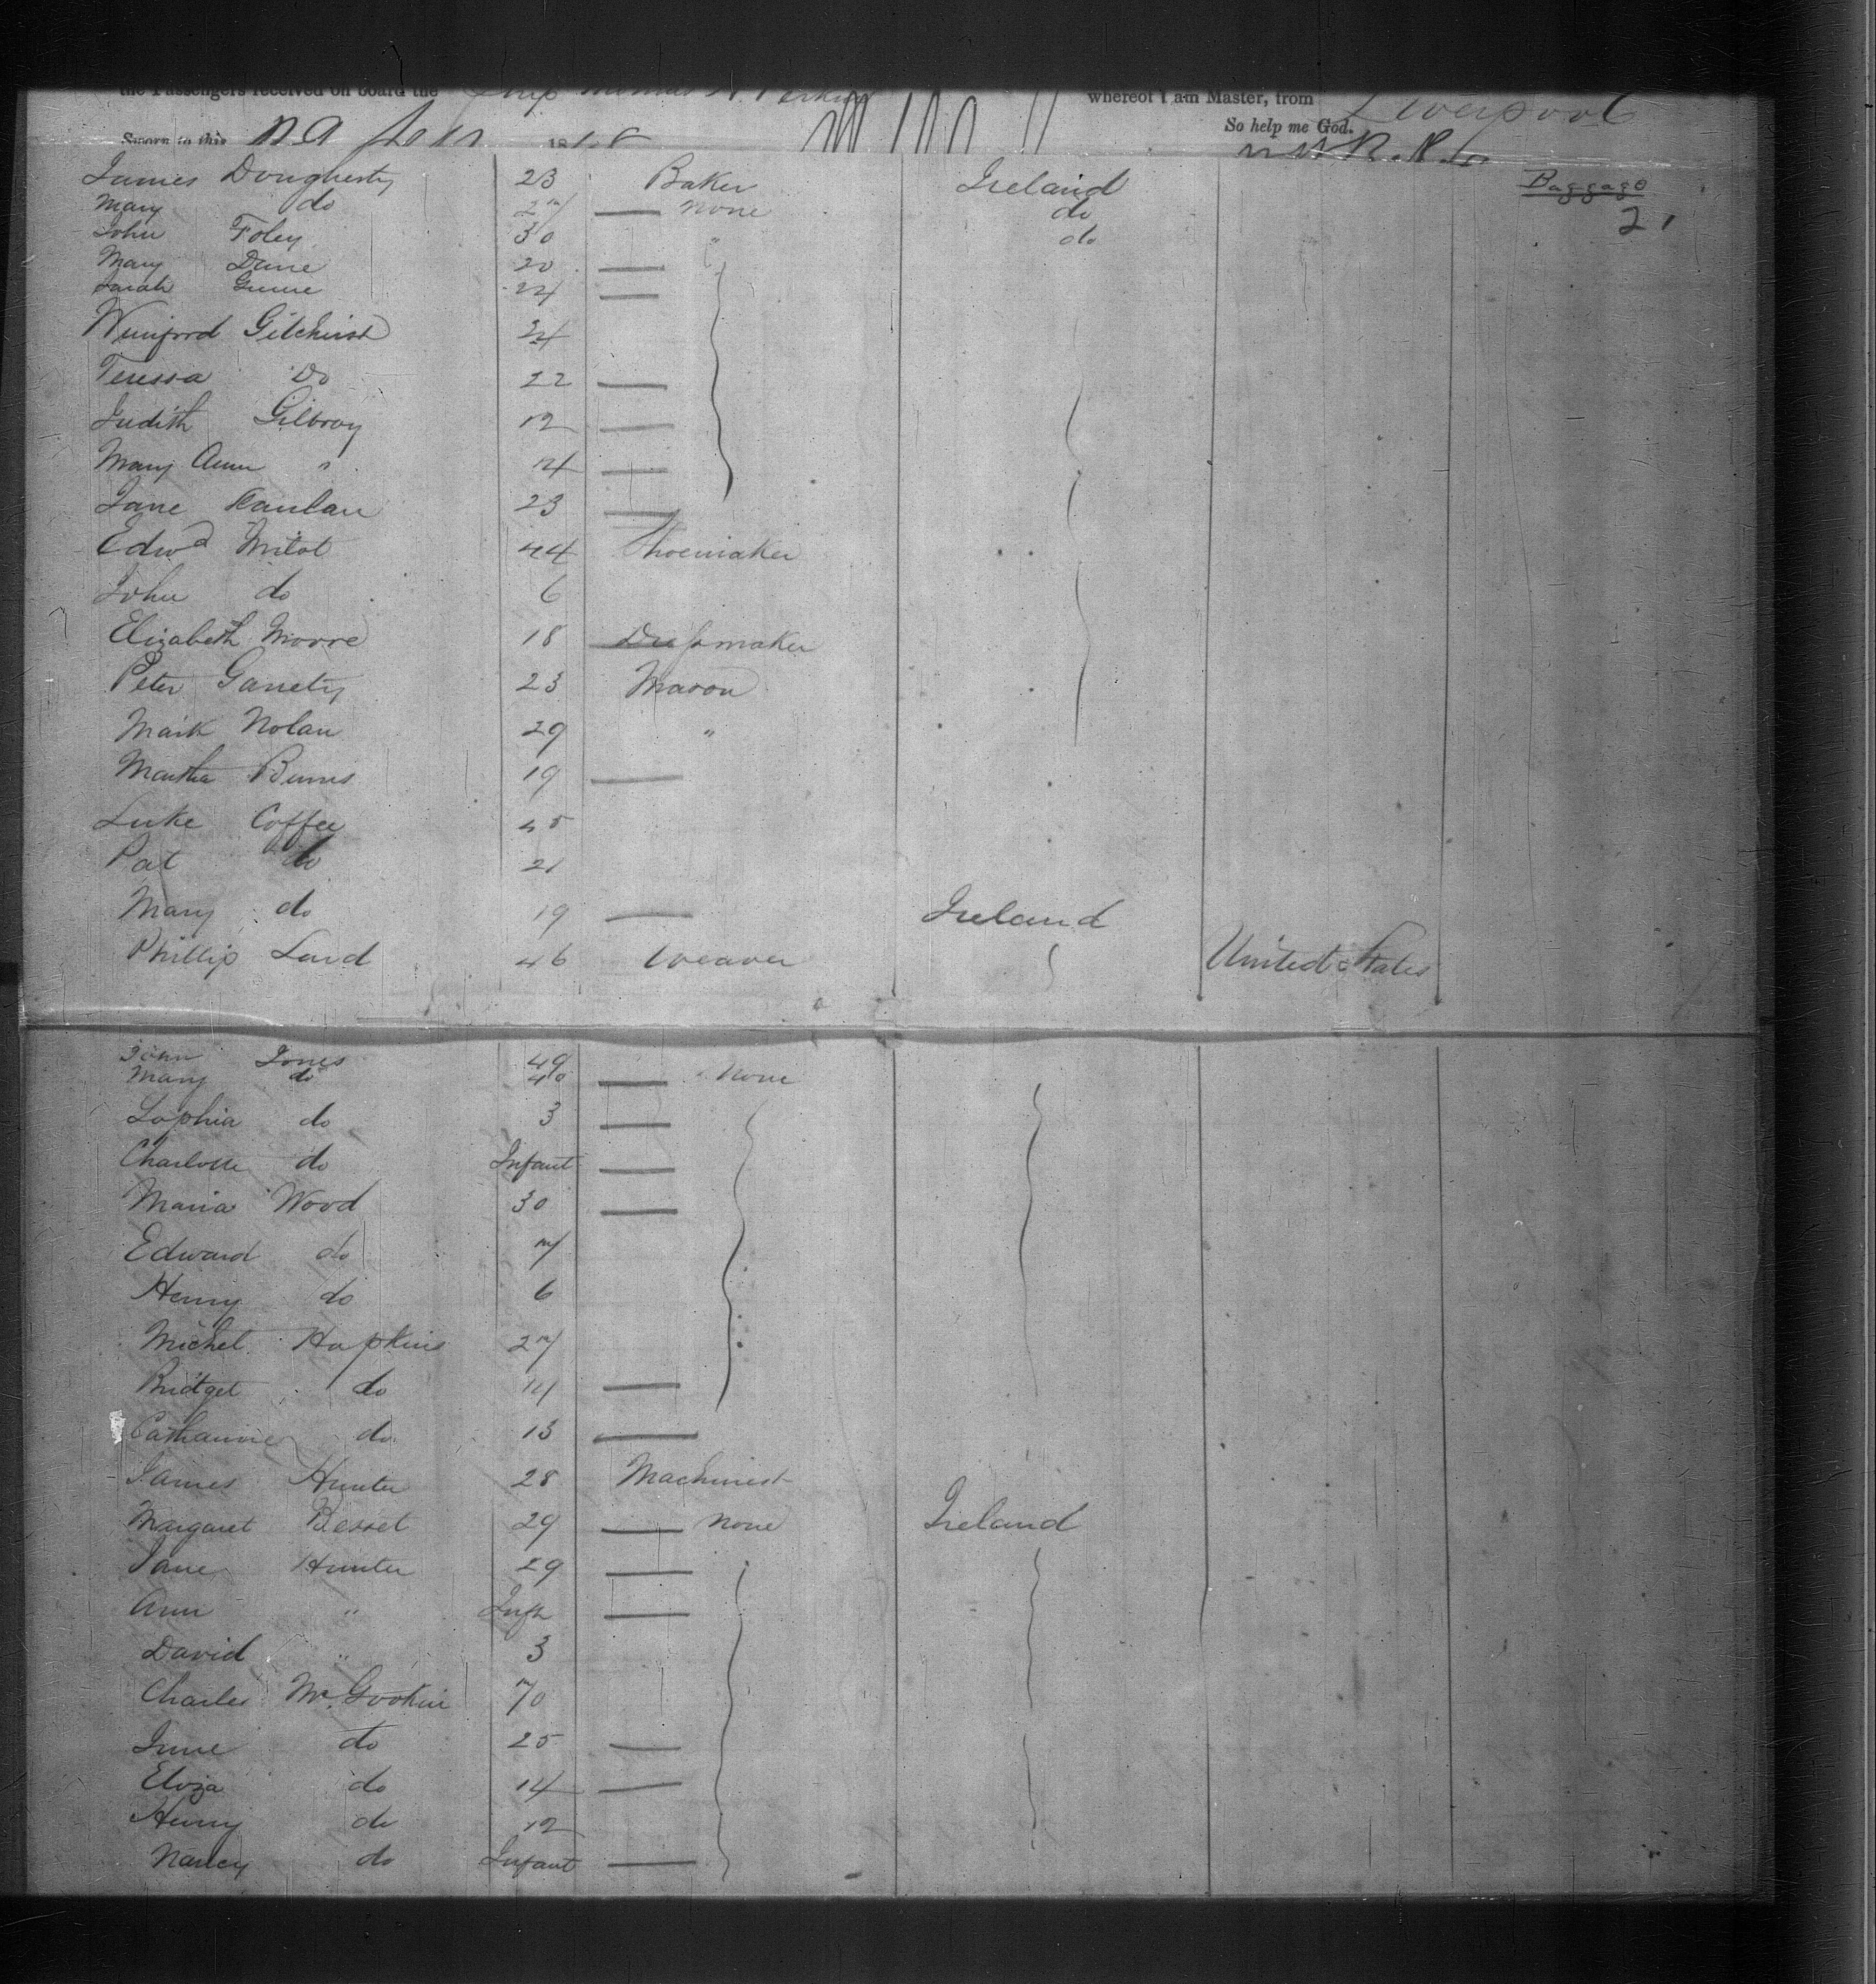 the Passengers received on board the Ship Thomas H. Perkins whereof I am Master, from Liverpool
So help me God.
Sworn to this 18
James Dougherty 23 Baker Ireland Baggage
Mary do 27 — none do 21
John Foley 30 " do
Mary Dune 20 —
Sarah 24 —
Winiford Gilchrist 24
Teressa Do 22 —
Judith Gilbroy 12 —
Mary Ann " 14 —
Jane Kanlan 23 —
Edwd Milot 44 Shoemaker
John do 6
Elizabeth Moore 18 Dressmaker
Peter Garrety 23 Mason
Mark Nolan 29 "
Martha Burns 19 —
Luke Coffee 45
Pat do 21
Mary do 19 — Ireland
Phillip Lard 46 Weaver United States
John Jones 49
Mary do 40 — none
Sophia do 3 —
Charlotte do Infant —
Maria Wood 30 —
Edward do 7
Henry do 6
Michel Hopkins 27
Bridget do 14 —
Catharine do 13 —
James Hunter 28 Machinest
Margaret Bessel 29 — none Ireland
Jane Hunter 29 —
Ann " Inft —
David " 3
Charles McGookin 70
Jane do 25 —
Eliza do 14 —
Henry do 12
Nancy do Infant —